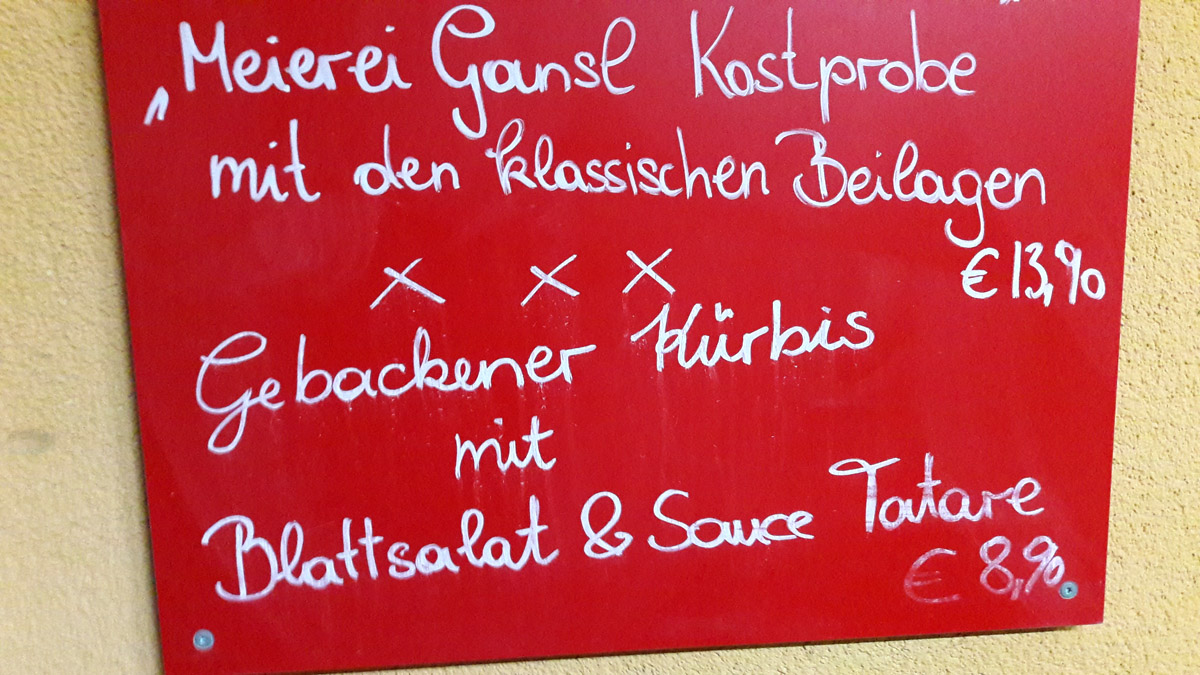 „Meierei Gansl Kostprobe
mit den klassischen Beilagen
€ 13,90
x x x
Gebackener Kürbis
mit
Blattsalat & Sauce Tatare
€ 8,90